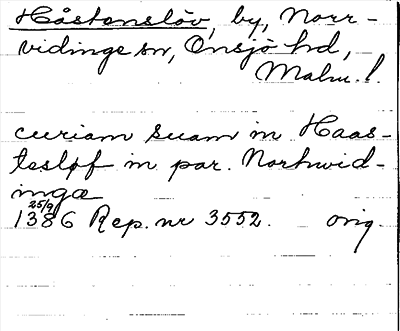 Håstenslöv, by, Norr-
vidinge sn, Onsjö hd,
Malm. l.
curiam suam in Haas-
tesløf in par. Northwid-
inga
25/9
1386 Rep. nr 3552. orig.